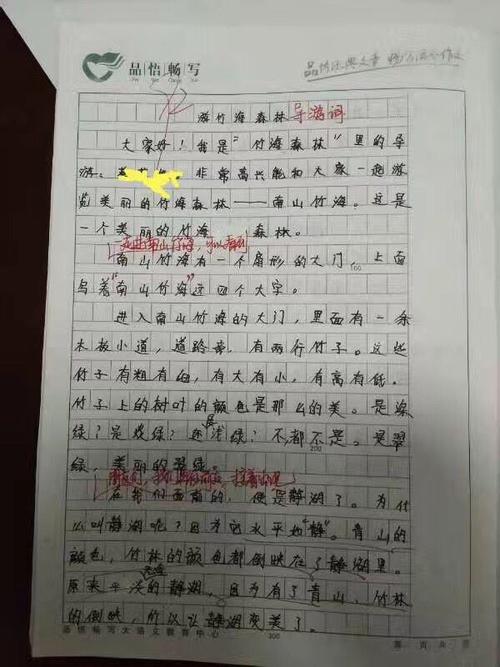 品悟畅写
品悟经典文章 畅写满分作文
游竹海森林 导游词
大家好！我是“竹海森林”里的导
游。非常高兴能和大家一起游
览美丽的竹海森林——南山竹海。这是
一个美丽的竹海森林。
走进南山竹海，可以看到
南山竹海有一个扇形的大门，上面
写着“南山竹海”这四个大字。
进入南山竹海的大门，里面有一条
木板小道，道路旁，有两行竹子。这些
竹子有粗有白，有大有小，有高有低。
竹子上的树叶的颜色是那么的美。是深
绿？是浅绿？还是浅绿？不，都不是。是翠
绿，美丽的翠绿
在我们西南的，便是静湖了。为什
么叫静湖呢？因为它水平如“静”。青山的
颜色，竹林的颜色都倒映在了静湖里。
原来平淡的静湖，因为有了青山，竹林
的倒映，所以让静湖变美了。
品悟畅写大语文教育中心
300
第 页 共 页